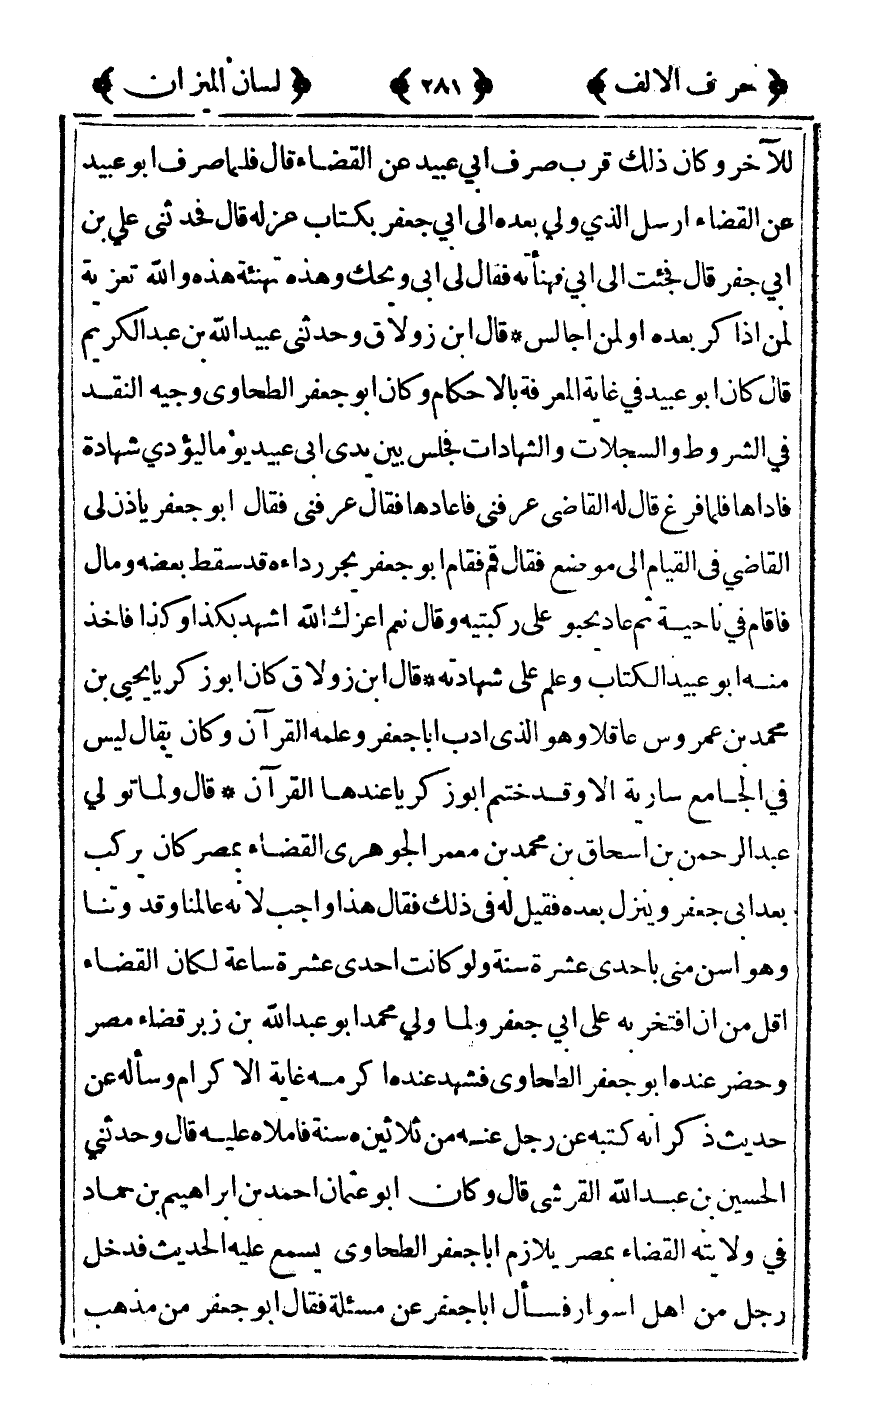 ﴿ حرف الالف ﴾ ﴿ ٢٨١ ﴾ ﴿ لسان الميزان ﴾
للآخر وكان ذلك قرب صرف ابي عبيد عن القضاء قال فلما صرف ابو عبيد
عن القضاء ارسل الذي ولي بعده الى ابي جعفر بكتاب عزله قال فحدثنى علي بن
ابي جعفر قال فجئت الى ابي فهنأته فقال لى ابى ويحك وهذه تهنئة هذه والله تعزية
لمن اذاكر بعده او لمن اجالس * قال ابن زولاق وحدثنى عبيد الله بن عبد الكريم
قال كان ابو عبيد في غاية المعرفة بالاحكام وكان ابو جعفر الطحاوى وجيه النقد
في الشروط والسجلات والشهادات فجلس بين يدى ابى عبيد يوما ليؤدي شهادة
فاداها فلما فرغ قال له القاضى عرفنى فاعادها فقال عرفنى فقال ابو جعفر ياذن لى
القاضي فى القيام الى موضع فقال قم فقام ابو جعفر يجر رداءه قد سقط بعضه ومال
فاقام في ناحية ثم عاد يحبو على ركبتيه وقال نعم اعزك الله اشهد بكذا وكذا فاخذ
منه ابو عبيد الكتاب وعلم على شهادته * قال ابن زولاق كان ابو زكريا يحيى بن
محمد بن عمروس عاقلا وهو الذى ادب ابا جعفر وعلمه القرآن وكان يقال ليس
في الجامع سارية الا وقد ختم ابو زكريا عندها القرآن * قال ولما تولي
عبد الرحمن بن اسحاق بن محمد بن معمر الجوهرى القضاء بمصر كان يركب
بعد ابى جعفر وينزل بعده فقيل له فى ذلك فقال هذا واجب لانه عالمنا وقدوتنا
وهو اسن منى باحدى عشرة سنة ولو كانت احدى عشرة ساعة لكان القضاء
اقل من ان افتخر به على ابي جعفر ولما ولي محمد ابو عبد الله بن زبر قضاء مصر
وحضر عنده ابو جعفر الطحاوى فشهد عنده اكرمه غاية الاكرام وسأله عن
حديث ذكر انه كتبه عن رجل عنه من ثلاثين سنة فاملاه عليه قال وحدثني
الحسين بن عبد الله القرشى قال وكان ابو عثمان احمد بن ابراهيم بن حماد
في ولايته القضاء بمصر يلازم ابا جعفر الطحاوى يسمع عليه الحديث فدخل
رجل من اهل اسوار فسأل ابا جعفر عن مسئلة فقال ابو جعفر من مذهب